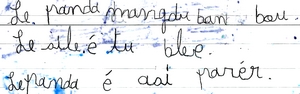 Le panda mangdu ban bou.
Le sile é tu blee.
Le panda é asi parér.